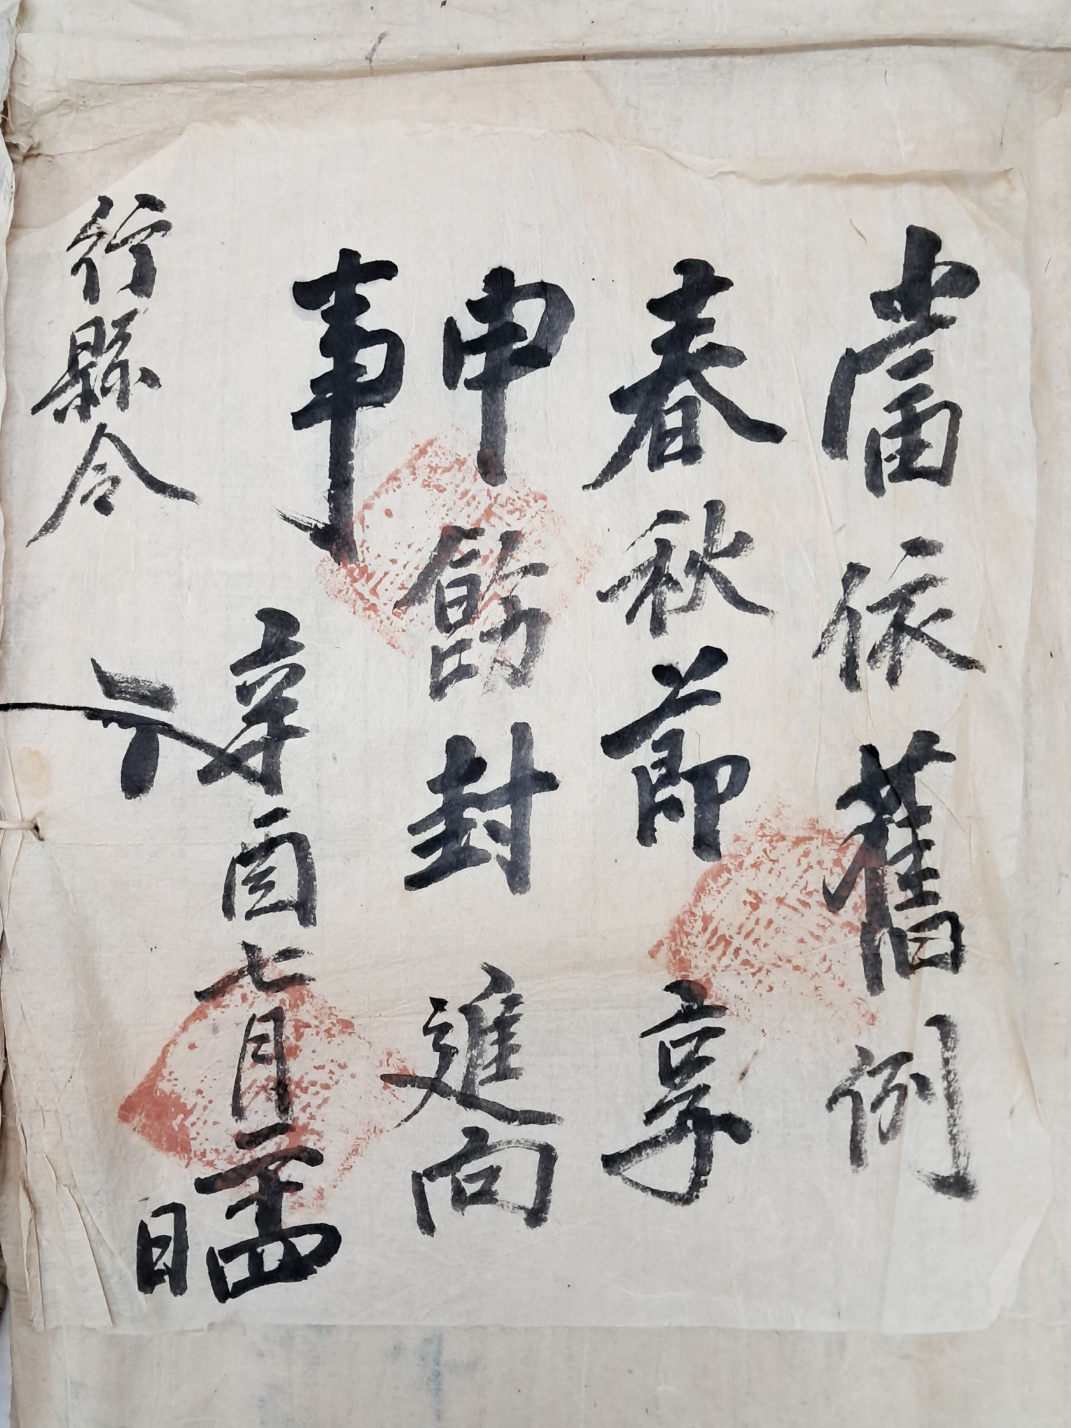 當依舊例
春秋節享
申飭封進向
事
辛酉七月二十四
日
行縣令